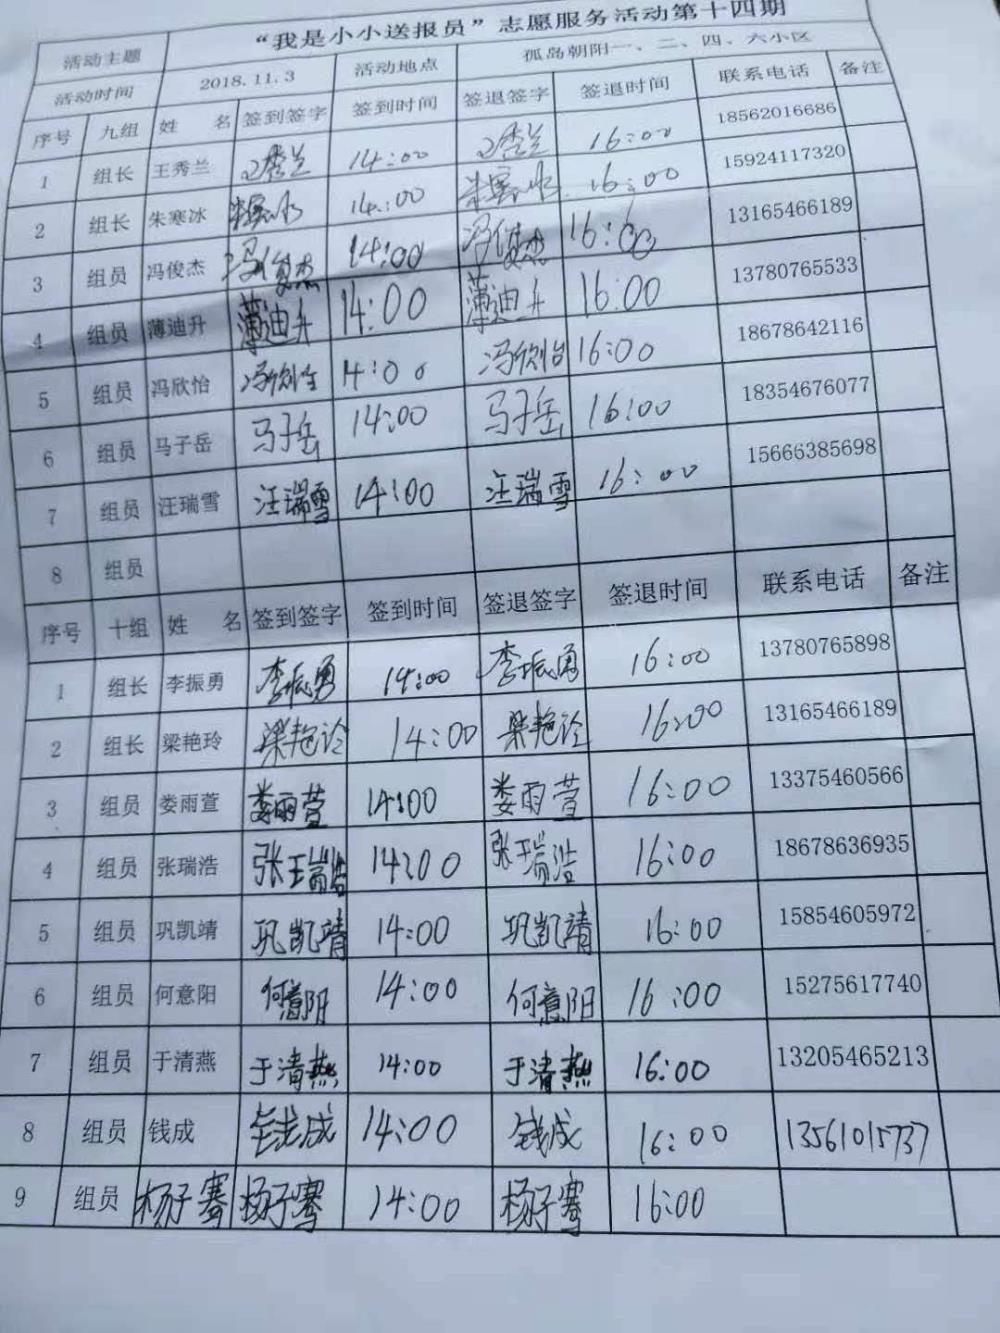 活动主题 “我是小小送报员”志愿服务活动第十四期
活动时间 2018.11.3 活动地点 孤岛朝阳一、二、四、六小区
序号 九组 姓 名 签到签字 签到时间 签退签字 签退时间 联系电话 备注
1 组长 王秀兰 王秀兰 14:00 王秀兰 16:00 18562016686
2 组长 朱寒冰 朱寒冰 14:00 朱寒冰 16:00 15924117320
3 组员 冯俊杰 冯俊杰 14:00 冯俊杰 16:00 13165466189
4 组员 薄迪升 薄迪升 14:00 薄迪升 16:00 13780765533
5 组员 冯欣怡 冯欣怡 14:00 冯欣怡 16:00 18678642116
6 组员 马子岳 马子岳 14:00 马子岳 16:00 18354676077
7 组员 汪瑞雪 汪瑞雪 14:00 汪瑞雪 16:00 15666385698
8 组员
序号 十组 姓 名 签到签字 签到时间 签退签字 签退时间 联系电话 备注
1 组长 李振勇 李振勇 14:00 李振勇 16:00 13780765898
2 组长 梁艳玲 梁艳玲 14:00 梁艳玲 16:00 13165466189
3 组员 娄雨萱 娄雨萱 14:00 娄雨萱 16:00 13375460566
4 组员 张瑞浩 张瑞浩 14:00 张瑞浩 16:00 18678636935
5 组员 巩凯靖 巩凯靖 14:00 巩凯靖 16:00 15854605972
6 组员 何意阳 何意阳 14:00 何意阳 16:00 15275617740
7 组员 于清燕 于清燕 14:00 于清燕 16:00 13205465213
8 组员 钱成 钱成 14:00 钱成 16:00 13561015737
9 组员 杨子骞 杨子骞 14:00 杨子骞 16:00